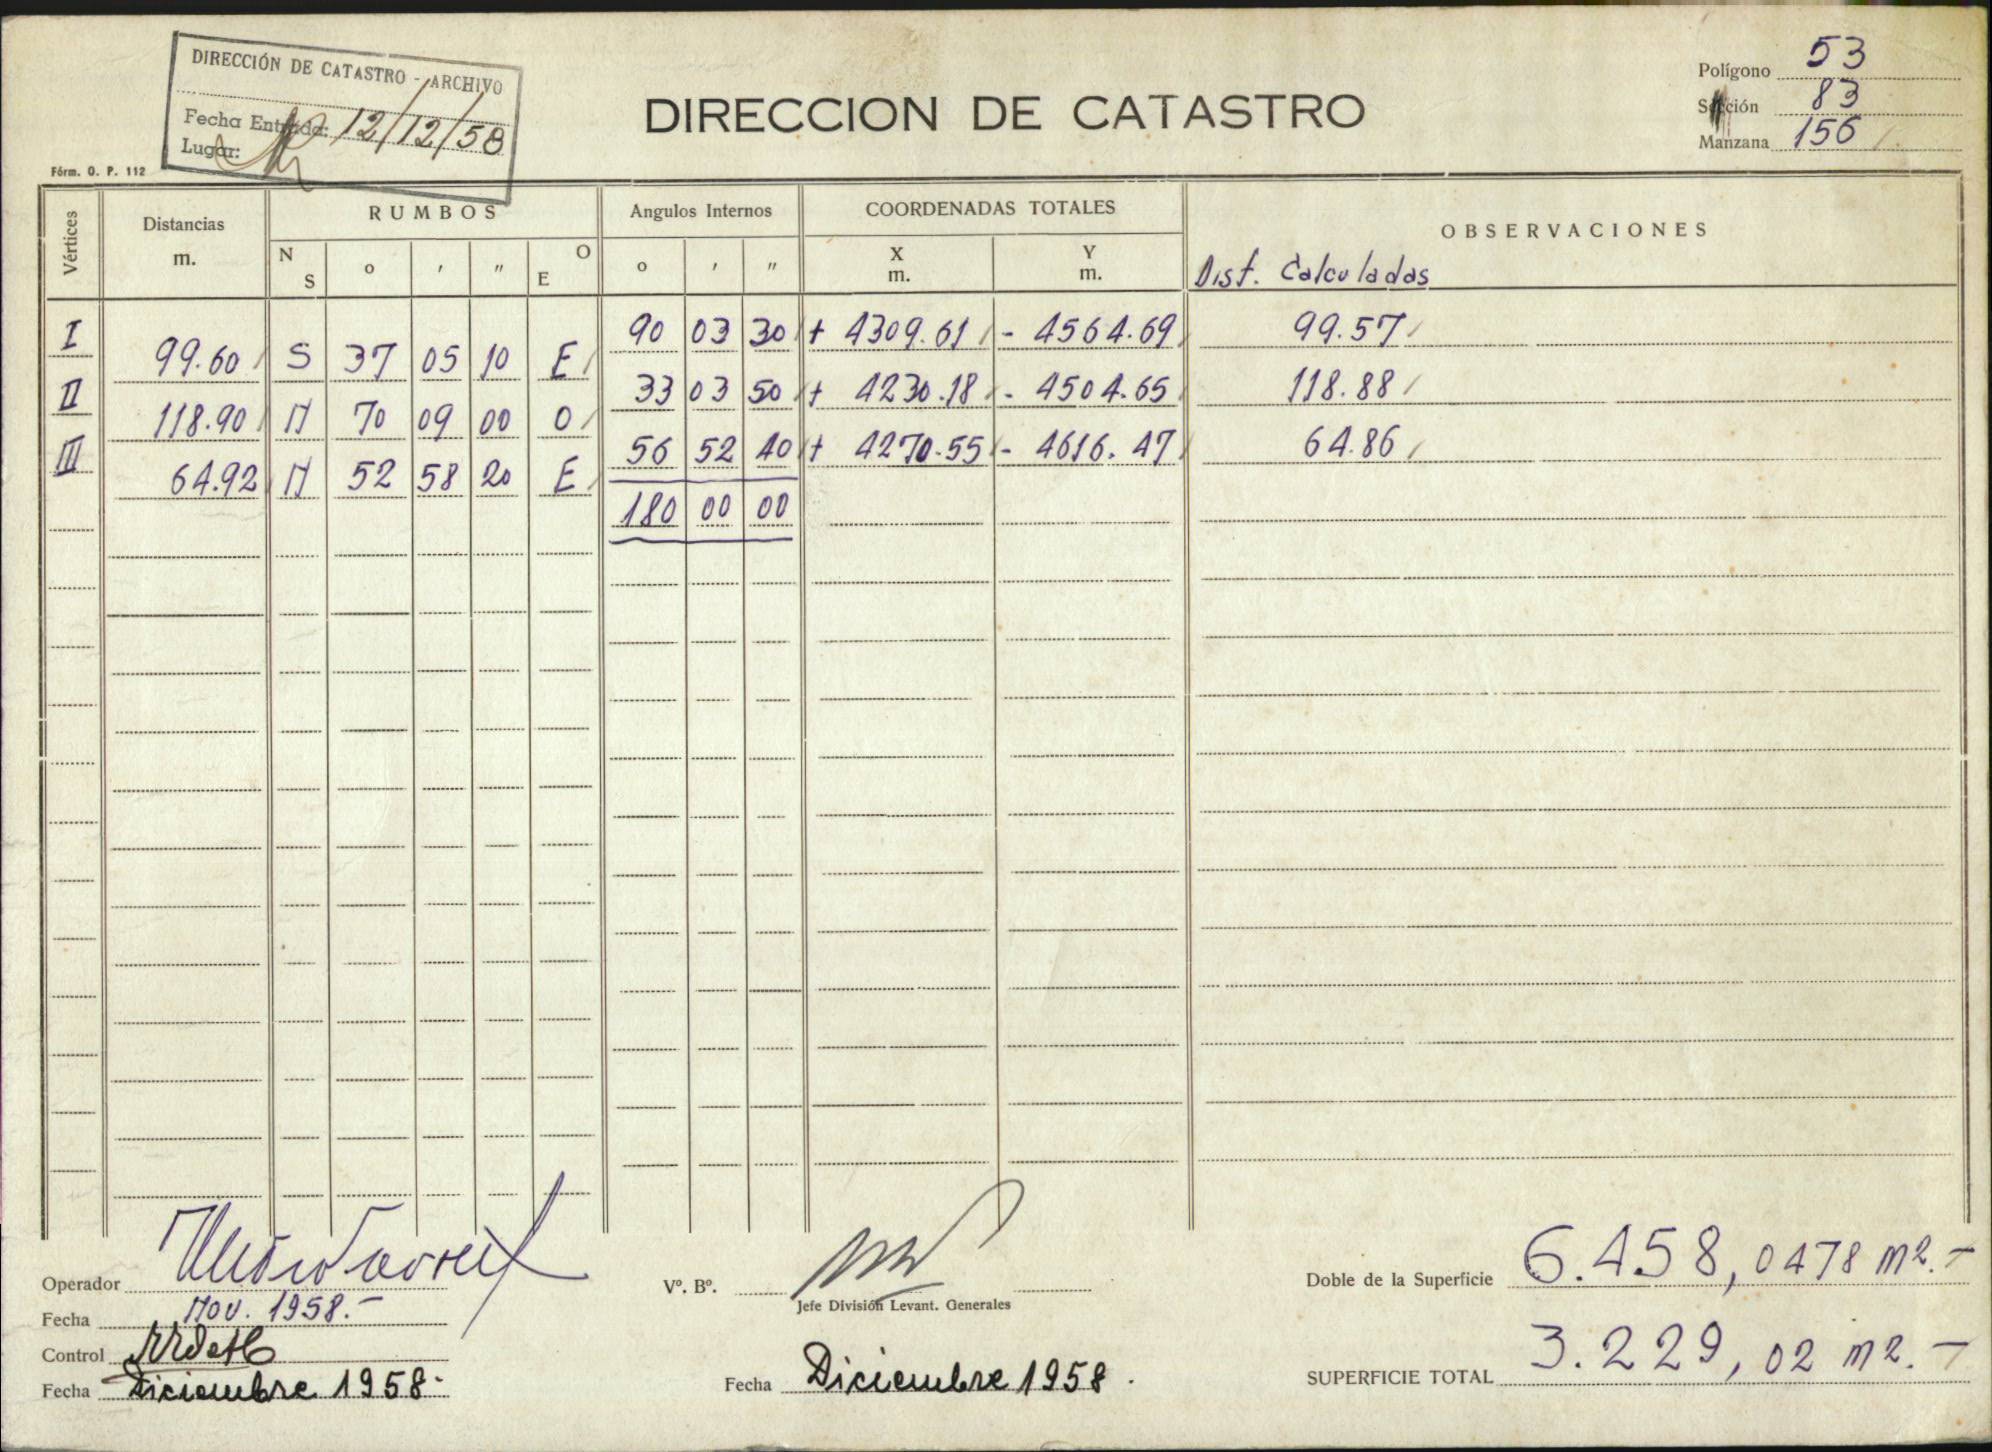 DIRECCIÓN DE CATASTRO - ARCHIVO
Fecha Entrada: 12/12/58
Lugar:
Fórm. O. P. 112
DIRECCION DE CATASTRO
Polígono 53
Sección 83
Manzana 156
Vértices
Distancias
m.
RUMBOS
N S o ' " O E
Angulos Internos
o ' "
COORDENADAS TOTALES
X m. Y m.
OBSERVACIONES
Dist. Calculadas
I 90 03 30 + 4309.61 - 4564.69 99.57
99.60 S 37 05 10 E
II 33 03 50 + 4230.18 - 4504.65 118.88
118.90 N 70 09 00 O
III 56 52 40 + 4270.55 - 4616.47 64.86
64.92 N 52 58 20 E
180 00 00
Operador
Fecha Nov. 1958.-
Control
Fecha Diciembre 1958.
Vº. Bº.
Jefe División Levant. Generales
Fecha Diciembre 1958.
Doble de la Superficie 6.458,0478 m2.-
SUPERFICIE TOTAL 3.229,02 m2.-